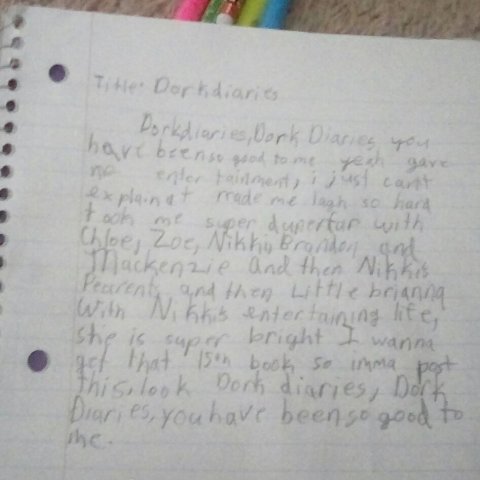 Title: Dorkdiaries
Dorkdiaries, Dork Diaries you
have been so good to me yeah gave
me entertainment, i just can't
explain it made me lagh so hard
took me super duper far with
Chloe, Zoe, Nikki, Brandon and
Mackenzie and then Nikkis
Pearents and then Little brianna
With Nikkis entertaining life,
she is super bright I wanna
get that 15th book so imma post
this, look Dork diaries, Dork
Diaries, you have been so good to
me.